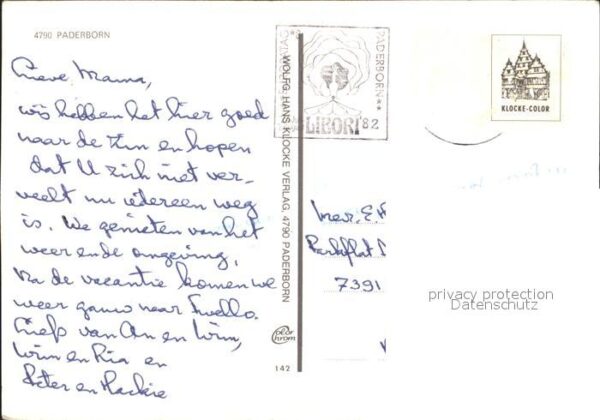 4790 PADERBORN
Lieve Mama,
wij hebben het hier goed
naar de zin en hopen
dat U zich niet ver-
veelt nu iedereen weg
is. We genieten van het
weer en de omgeving.
Na de vacantie komen we
weer gauw naar Twello.
Liefs van An en Wim,
Wim en Ria en
Peter en
WOLFG. HANS KLOCKE VERLAG, 4790 PADERBORN
142
PADERBORN**
LIBORI '82
KLOCKE-COLOR
Mevr. E.
Parkflat
7391
privacy protection
Datenschutz